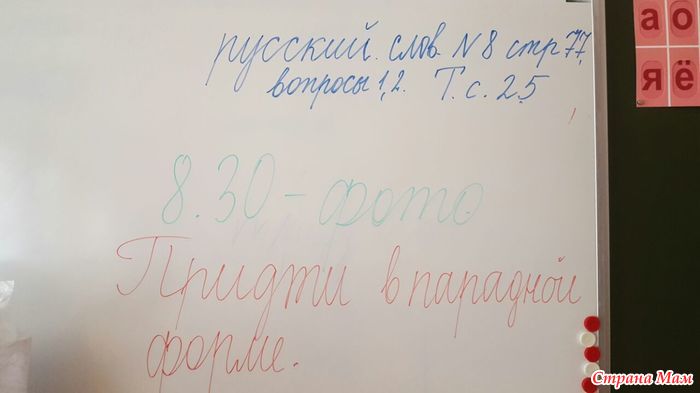 русский. слов. N 8 стр 77,
вопросы 1,2. Т. с. 25
8.30 - фото
Придти в парадной
форме.
а о
я ё
Страна Мам